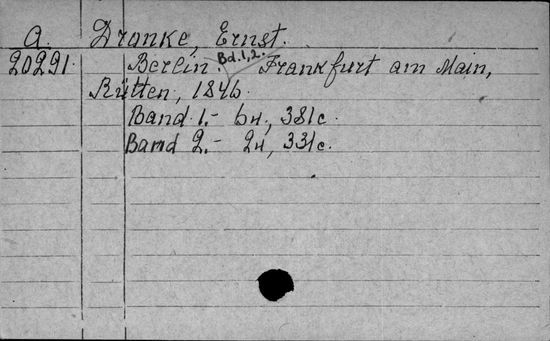 A Dronke, Ernst.
20291. Berlin. Bd. 1,2. Frankfurt am Main,
Rütten, 1846.
Band 1.- 6н, 381с.
Band 2.- 2н, 331с.